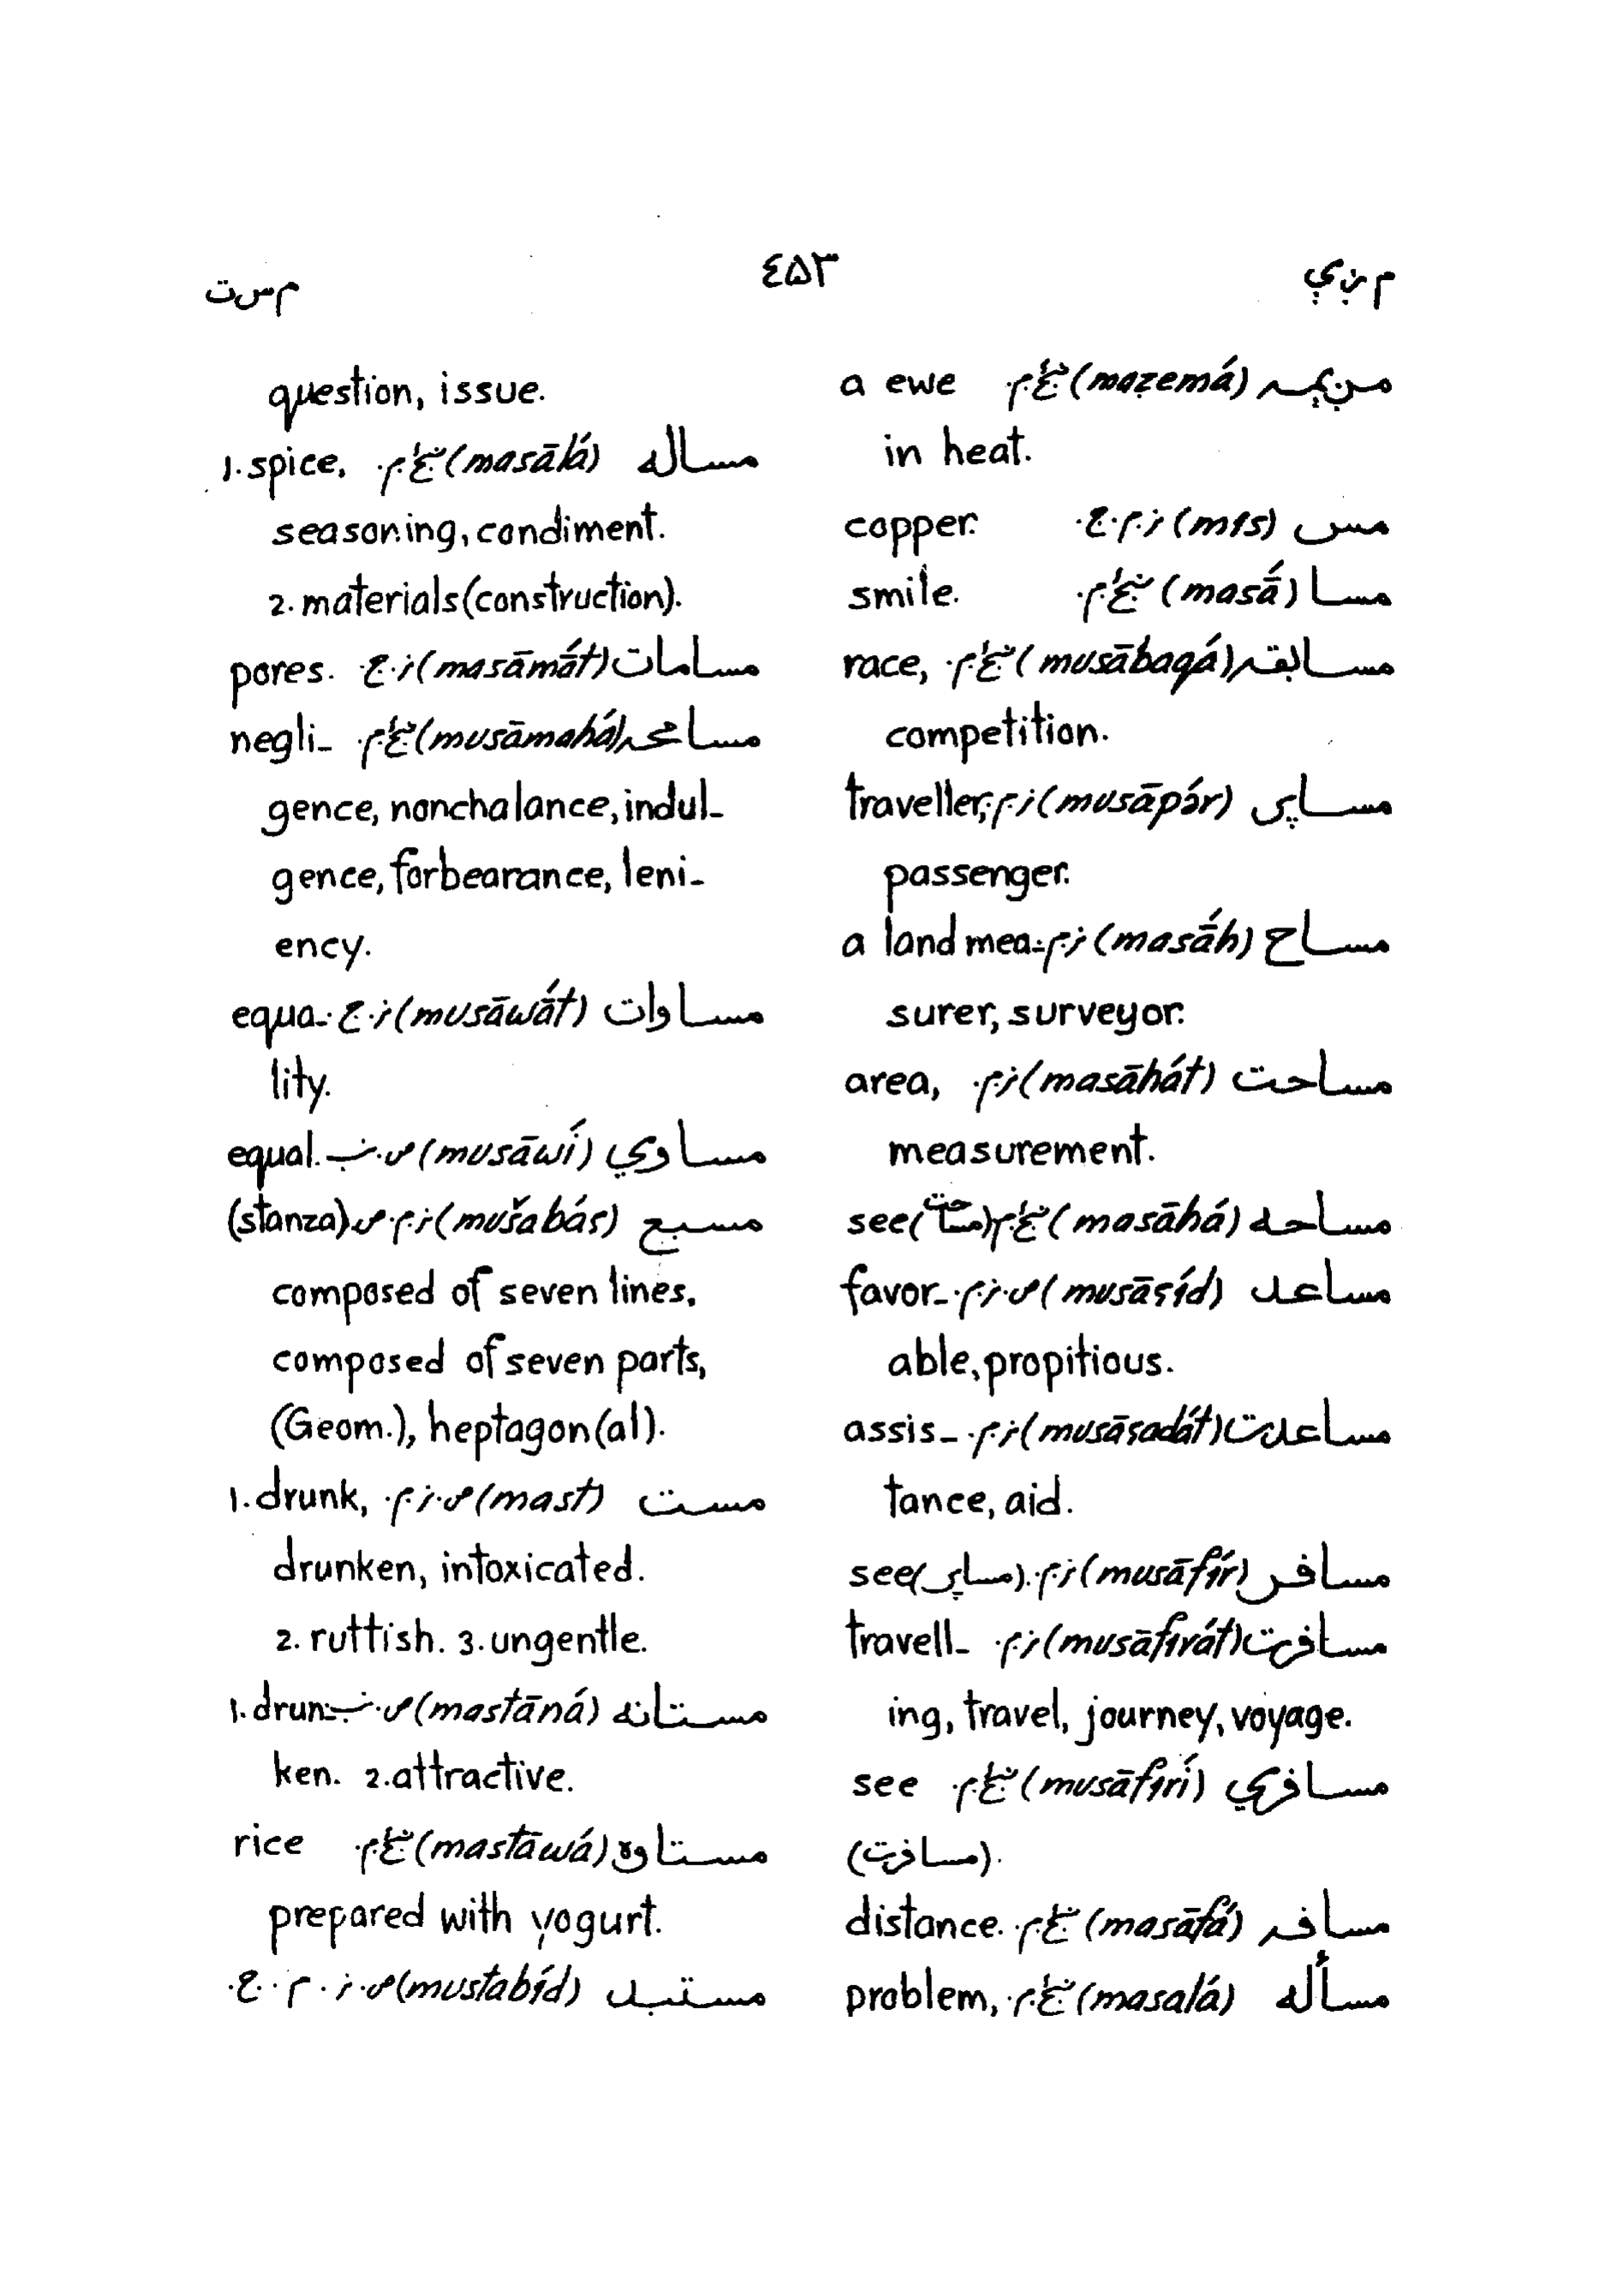 م ږ ي
٤٥٣
م س ت
مږيمه (maẓemá) ښځ.م. a ewe
in heat.
مس (mɪs) ن.م.ج. copper.
مسا (masā́) ښځ.م. smile.
مسابقه (musābaqá) ښځ.م. race,
competition.
مساپر (musāpə́r) ن.م. traveller,
passenger.
مساح (masā́h) ن.م. a land mea-
surer, surveyor.
مساحت (masāhát) ن.م. area,
measurement.
مساحه (masāhá) ښځ.م. (مساحت) see
مساعد (musāʕíd) ص.ن.م. favor-
able, propitious.
مساعدت (musāʕadát) ن.م. assis-
tance, aid.
مسافر (musāfír) ن.م. (مساپر) see
مسافرت (musāfɪrát) ن.م. travell-
ing, travel, journey, voyage.
مسافري (musāfɪrí) ښځ.م. see
(مسافرت).
مسافه (masāfá) ښځ.م. distance.
مسأله (masalá) ښځ.م. problem,
question, issue.
مساله (masālá) ښځ.م. 1. spice,
seasoning, condiment.
2. materials (construction).
مسامات (masāmā́t) ن.ج. pores.
مسامحه (musāmahá) ښځ.م. negli-
gence, nonchalance, indul-
gence, forbearance, leni-
ency.
مساوات (musāwā́t) ن.ج. equa-
lity.
مساوي (musāwí) ص. equal.
مسبع (mušabáʕ) ن.م.ص. (stanza)
composed of seven lines,
composed of seven parts,
(Geom.), heptagon(al).
مست (mast) ص.ن.م. 1. drunk,
drunken, intoxicated.
2. ruttish. 3. ungentle.
مستانه (mastāná) ص. 1. drun-
ken. 2. attractive.
مستاوه (mastāwá) ښځ.م. rice
prepared with yogurt.
مستبد (mustabíd) ص.ن.م.ج.